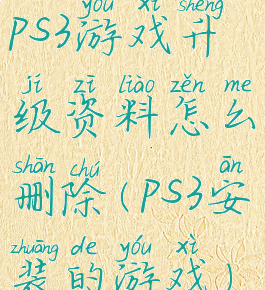 yóu xì shēng
PS3游戏升
jí zī liào zěn me
级资料怎么
shān chú ān
删除(PS3安
zhuāng de yóu xì
装的游戏)